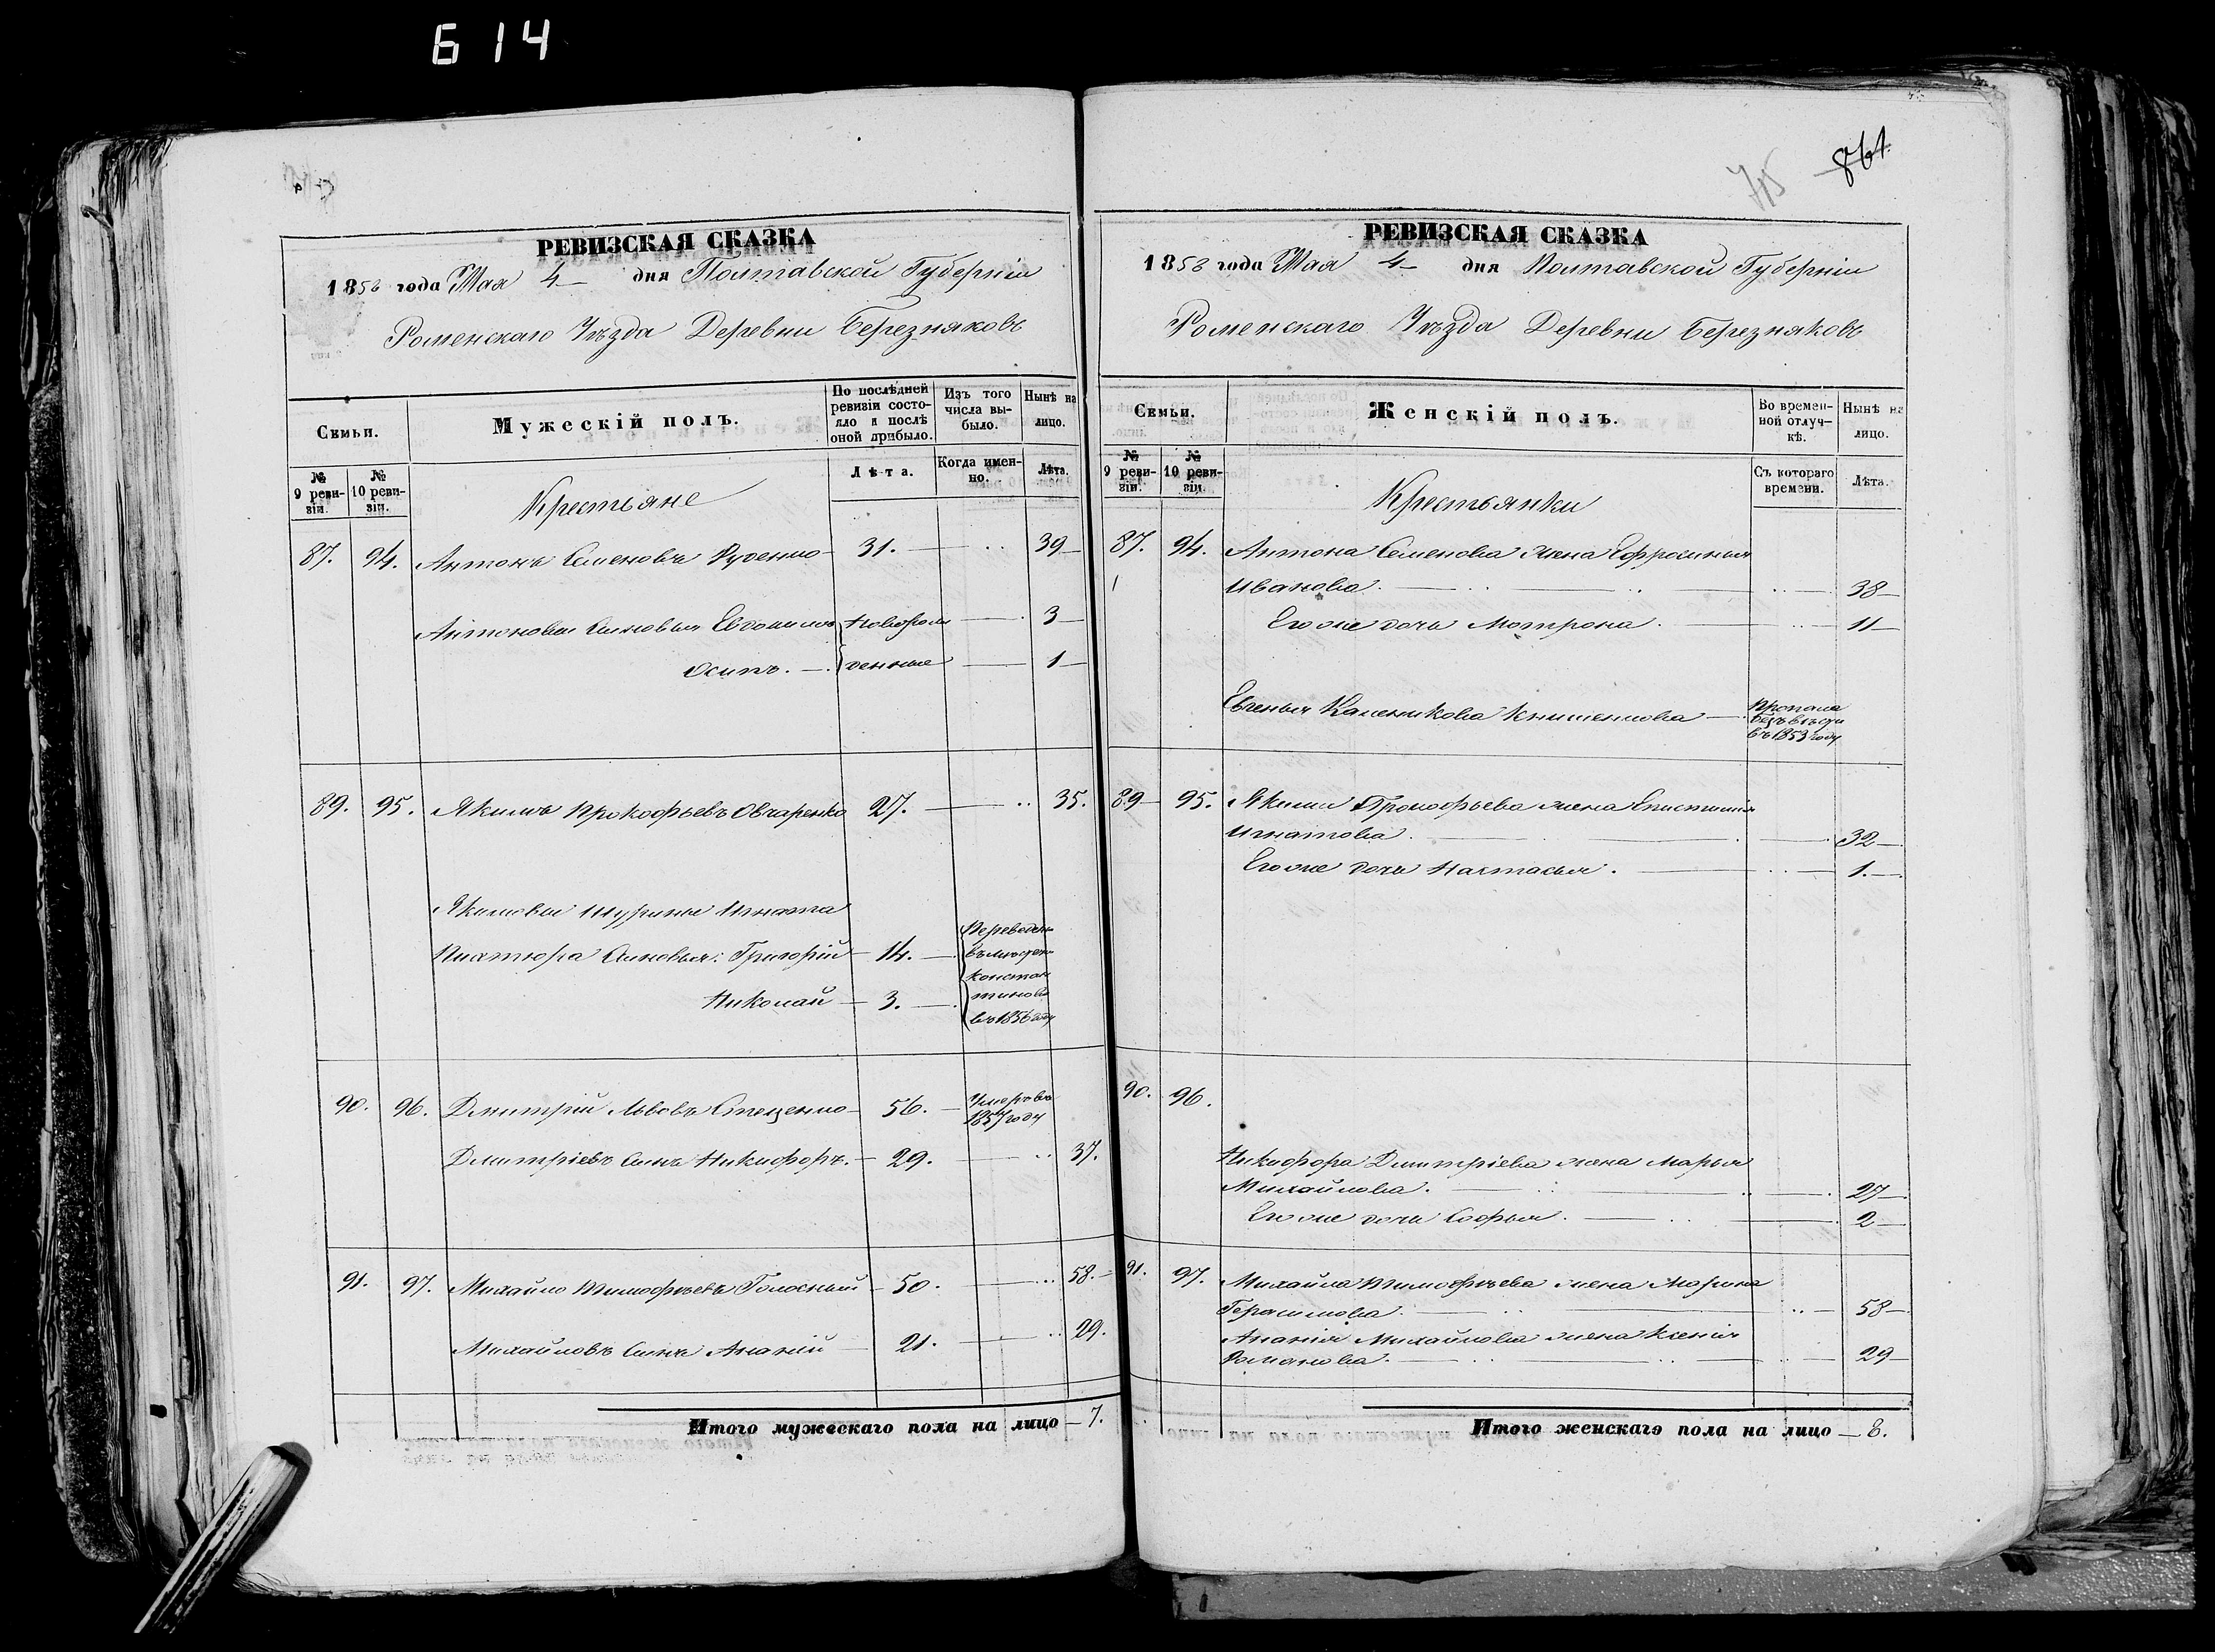 614
РЕВИЗСКАЯ СКАЗКА
1858 года Мая 4 дня Полтавской Губерніи
Роменскаго Уѣзда Деревни Березняковъ
Семьи.
Мужескій полъ.
По послѣдней ревизіи состояло и послѣ оной прибыло.
Изъ того числа выбыло.
Нынѣ на лицо.
№ 9 ревизіи.
№ 10 ревизіи.
Крестьяне
Лѣта.
Когда именно.
Лѣта.
87. 94. Антонъ Семеновъ Руденко 31. 39
Антоновы сыновья Евдокимъ Новорож 3
Осипъ. денные 1
89. 95. Якимъ Прокофьевъ Овчаренко 27. 35.
Якимовы шурины Игната
Пихтюра сыновья: Григорій 14. Переведены
въ мѣстечко
Константиновъ
Николай 3. въ 1856 году
90. 96. Дмитрій Львовъ Стеценко 56. Умеръ въ
1857 году
Дмитріевъ сынъ Никифоръ. 29. 37.
91. 97. Михайло Тимофѣевъ Голосный 50. 58.
Михайловъ сынъ Ананій 21. 29.
Итого мужескаго пола на лицо 7.
715 861.
РЕВИЗСКАЯ СКАЗКА
1858 года Мая 4 дня Полтавской Губерніи
Роменскаго Уѣзда Деревни Березняковъ
Семьи.
Женскій полъ.
Во временной отлучкѣ.
Нынѣ на лицо.
№ 9 ревизіи.
№ 10 ревизіи.
Крестьянки
Съ котораго времени.
Лѣта.
87. 94. Антона Семенова жена Ефросинья
Иванова. 38
Его же дочь Мотрона. 11
Евгенья Каленикова Книшенкова Пропала
безъ вѣсти
въ 1853 году
89 95. Якима Прокофьева жена Епистимия
Игнатова. 32
Его же дочь Настасья. 1.
90. 96.
Никифора Дмитріева жена Марья
Михайлова. 27
Его же дочь Софья. 2
91. 97. Михайла Тимофѣева жена Марина
Герасимова. 58
Ананія Михайлова жена Ксенія
Романова. 29
Итого женскаго пола на лицо 8.